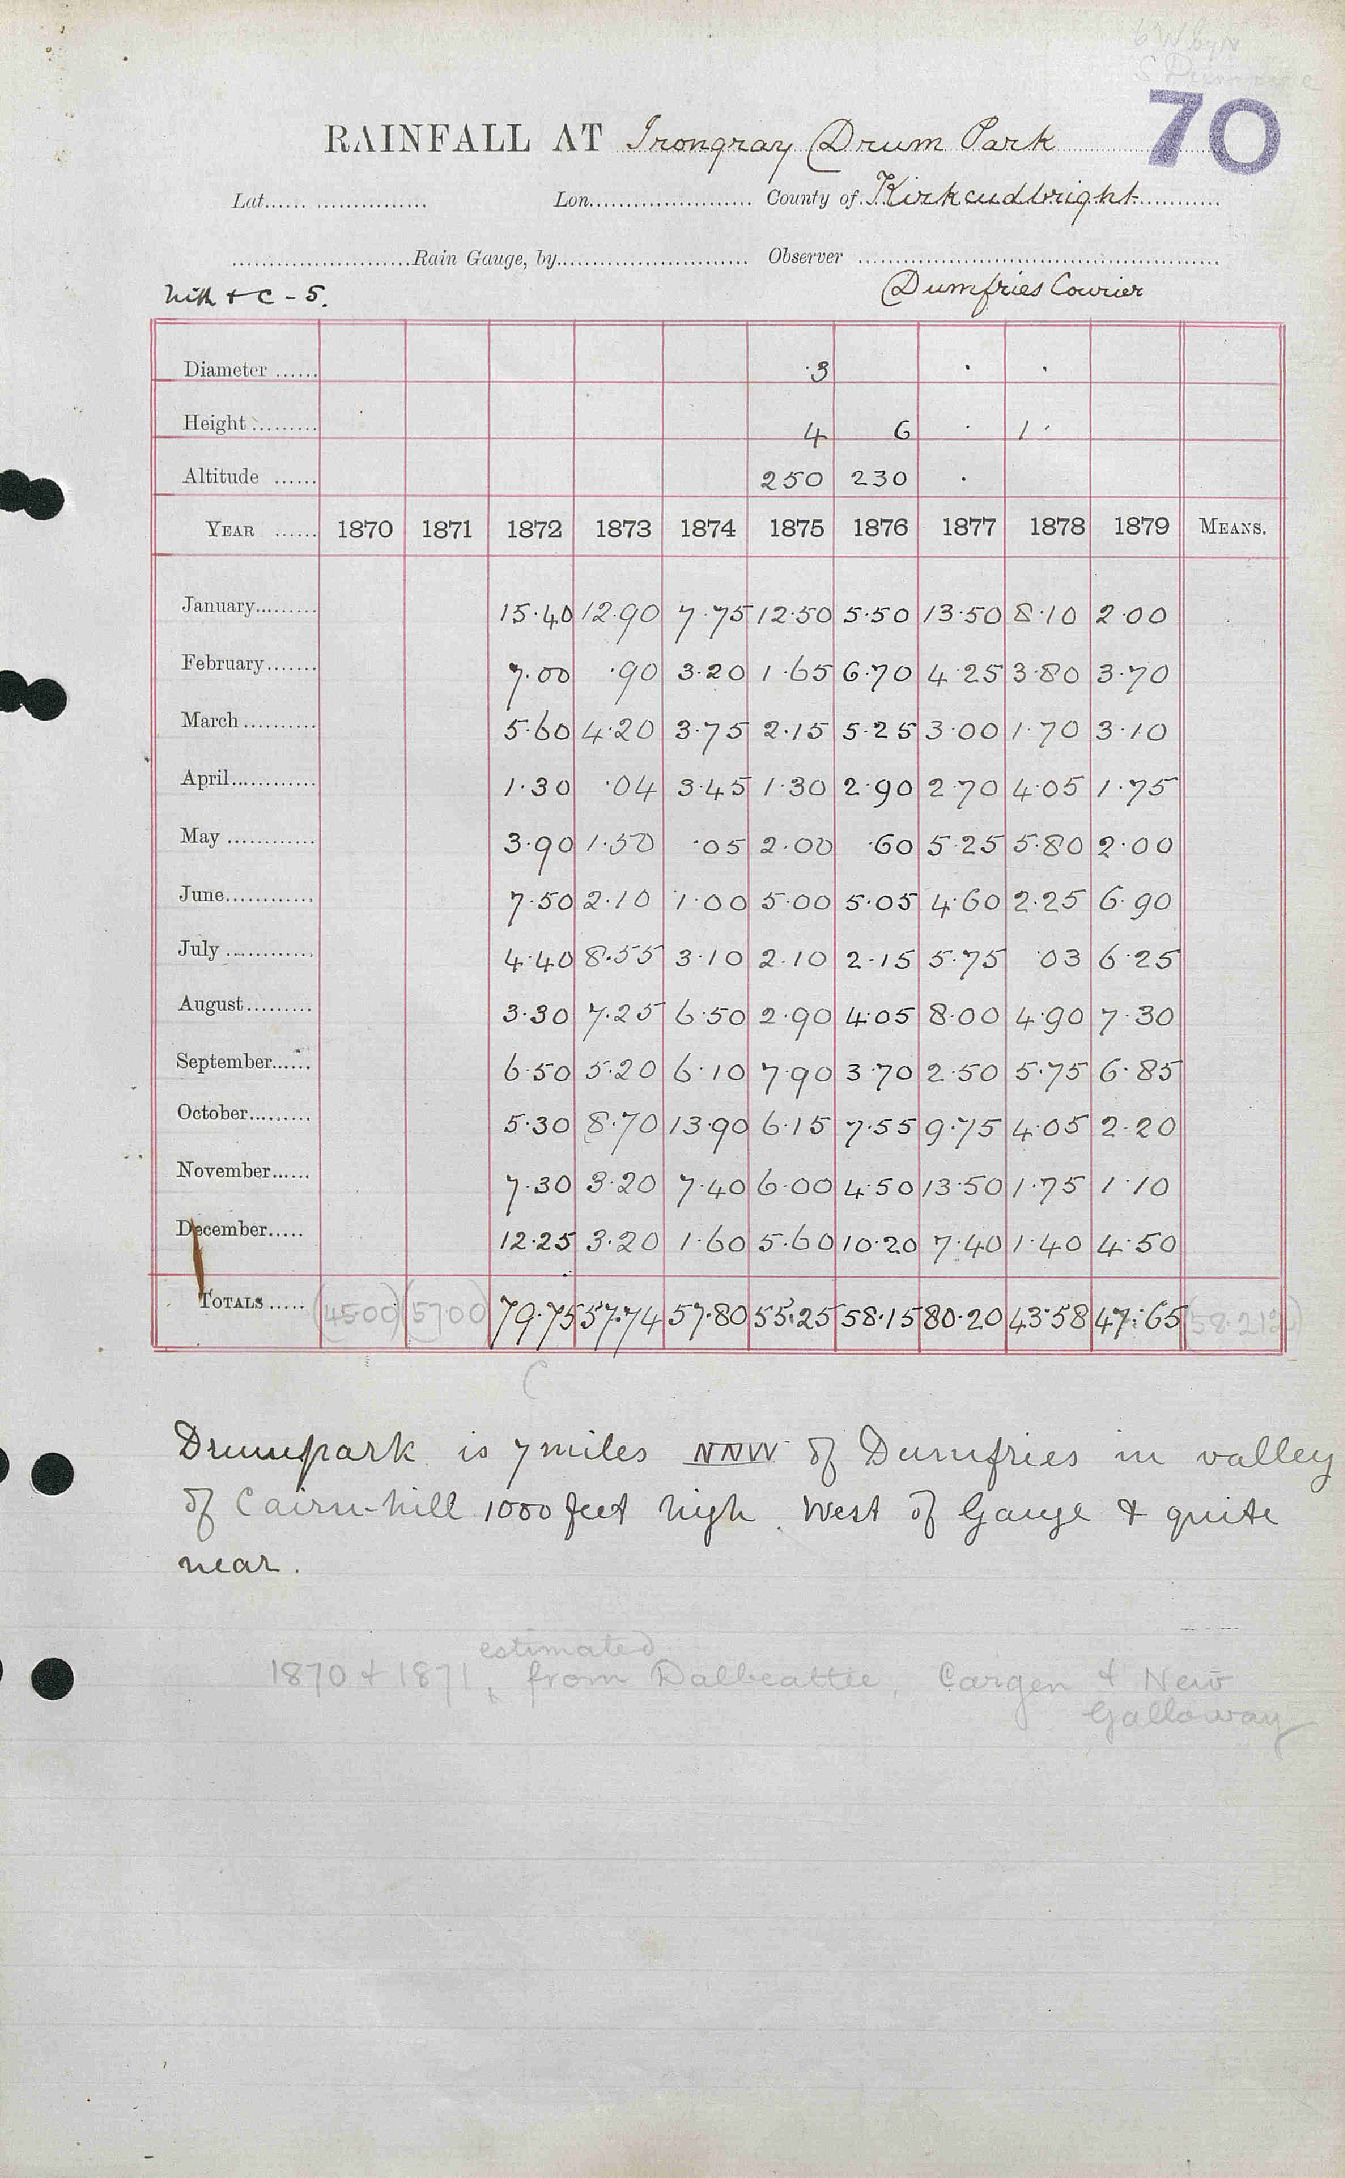 70
RAINFALL AT Irongray Drum Park
Lat. Lon. County of Kirkcudbright
Rain Gauge, by Observer
Nith & C - 5. Dumfries Courier
Diameter ...... ·3
Height ......... 4 6 1
Altitude ...... 250 230
YEAR ...... 1870 1871 1872 1873 1874 1875 1876 1877 1878 1879 MEANS.
January......... 15·40 12·90 7·75 12·50 5·50 13·50 8·10 2·00
February....... 7·00 ·90 3·20 1·65 6·70 4·25 3·80 3·70
March .......... 5·60 4·20 3·75 2·15 5·25 3·00 1·70 3·10
April............ 1·30 ·04 3·45 1·30 2·90 2·70 4·05 1·75
May ............ 3·90 1·50 ·05 2·00 ·60 5·25 5·80 2·00
June............ 7·50 2·10 1·00 5·00 5·05 4·60 2·25 6·90
July ............ 4·40 8·55 3·10 2·10 2·15 5·75 ·03 6·25
August......... 3·30 7·25 6·50 2·90 4·05 8·00 4·90 7·30
September...... 6·50 5·20 6·10 7·90 3·70 2·50 5·75 6·85
October......... 5·30 8·70 13·90 6·15 7·55 9·75 4·05 2·20
November...... 7·30 3·20 7·40 6·00 4·50 13·50 1·75 1·10
December..... 12·25 3·20 1·60 5·60 10·20 7·40 1·40 4·50
TOTALS ..... (45·00) (57·00) 79·75 57·74 57·80 55·25 58·15 80·20 43·58 47·65
C
Drumpark is 7 miles NNW of Dumfries in valley
of Cairn-hill 1000 feet high. West of Gauge & quite
near.
estimated
1870 & 1871, from Dalbeattie, Cargen & New
Galloway